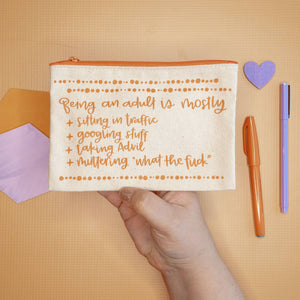 Being an adult is mostly
+ sitting in traffic
+ googling stuff
+ taking Advil
+ muttering "what the fuck"